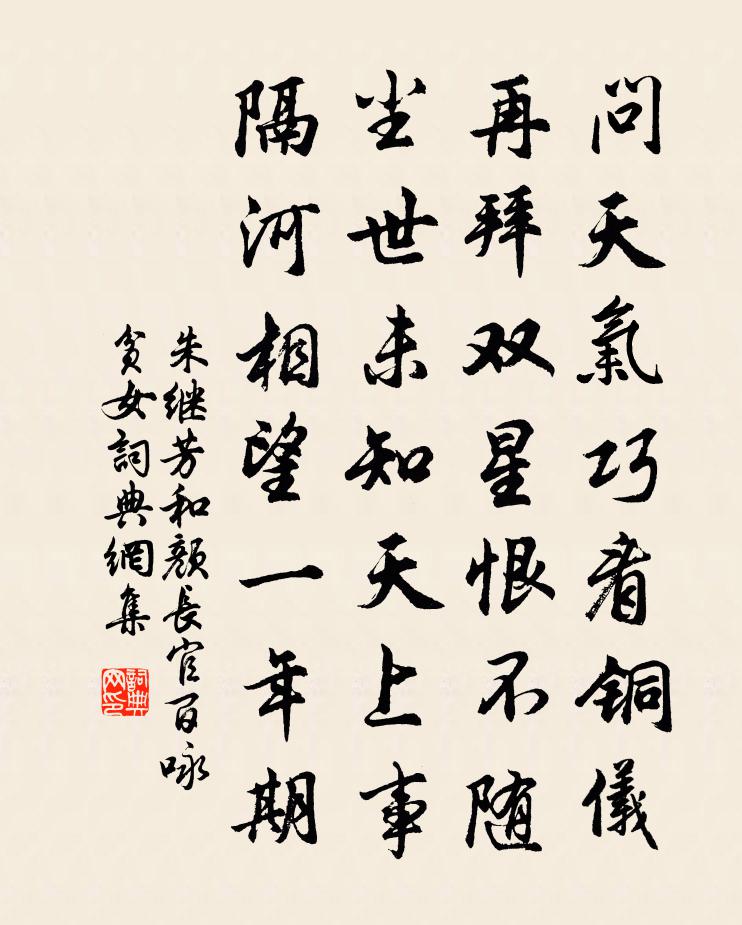 问天氣巧者铜儀
再拜双星恨不随
尘世未知天上事
隔河相望一年期
朱继芳和颜長官百咏
贫女詞典網集
詞典网印